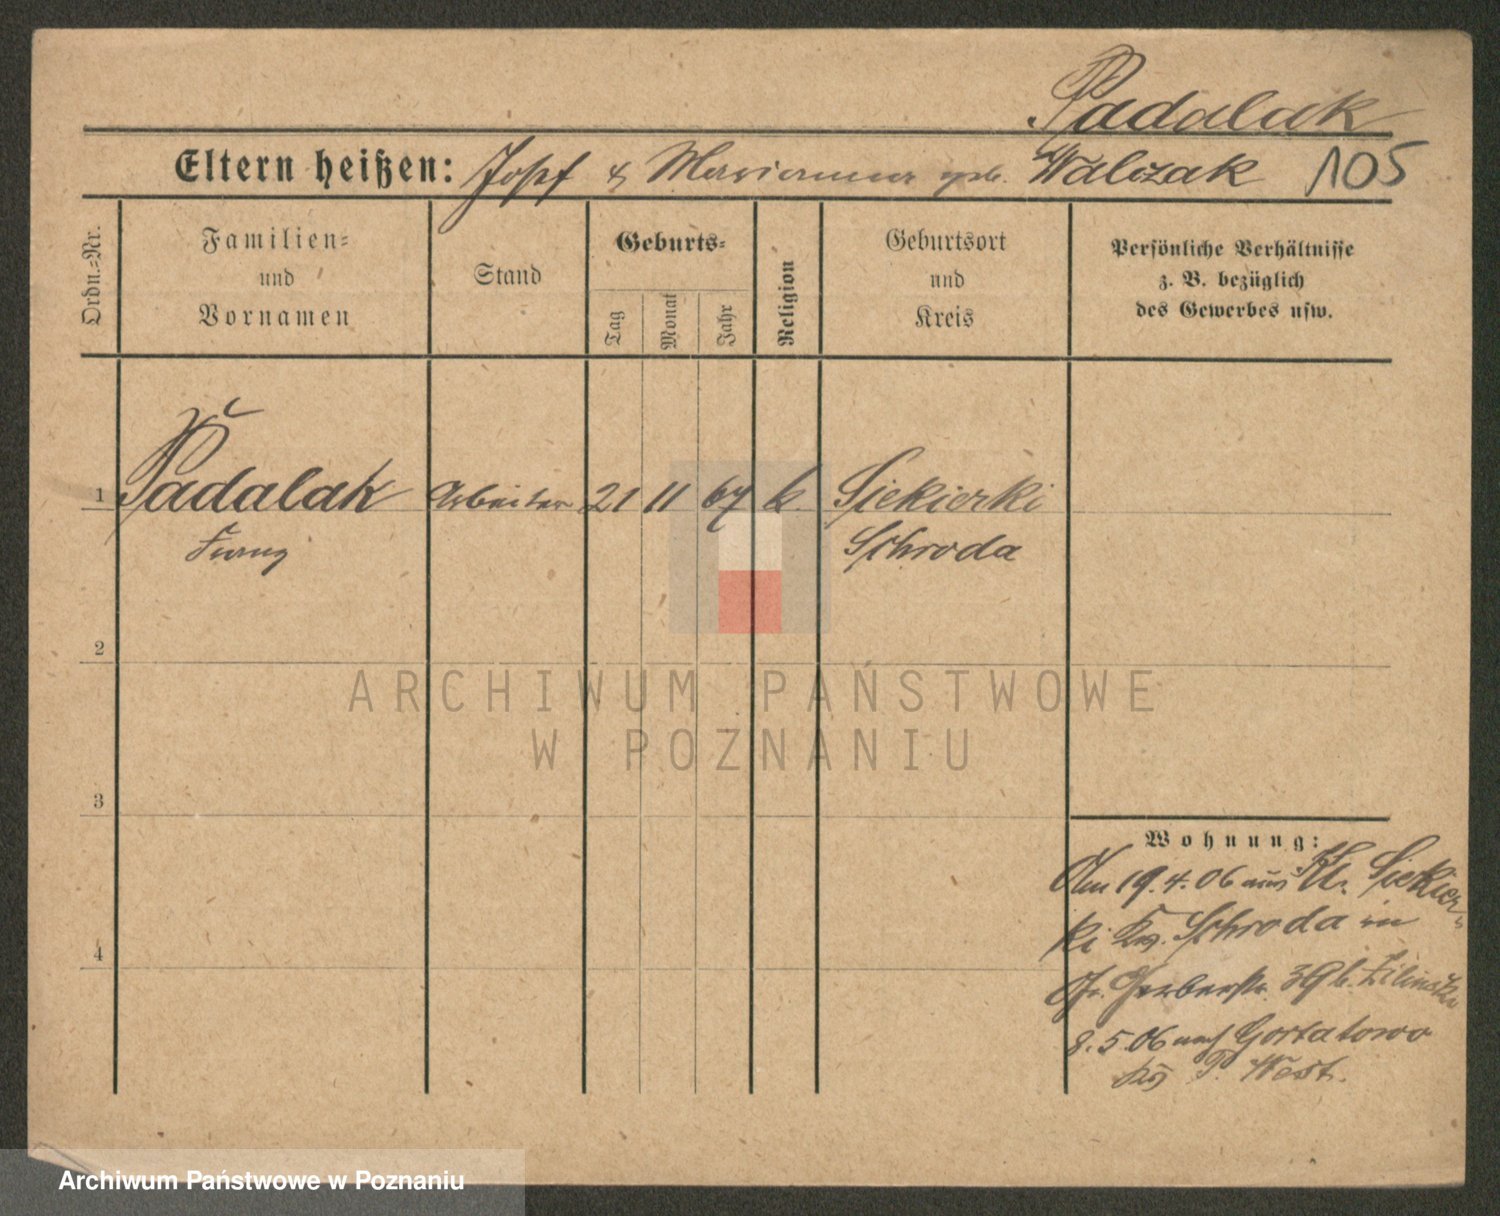 Padalak
Eltern heißen: Josef & Marianna geb. Walczak 105
Ordn.-Nr.
Familien-
und
Vornamen
Stand
Geburts-
Tag
Monat
Jahr
Religion
Geburtsort
und
Kreis
Persönliche Verhältnisse
z. B. bezüglich
des Gewerbes usw.
1 Padalak Arbeiter 21 11 67 k. Siekierki
Franz Schroda
2
3
4
Wohnung:
Am 19.4.06 aus Kl. Siekier-
ki Krs. Schroda in
Gerberstr. 39 b. Zilinski
8.5.06 nach Gortatowo
Krs P. West.
ARCHIWUM PAŃSTWOWE
W POZNANIU
Archiwum Państwowe w Poznaniu